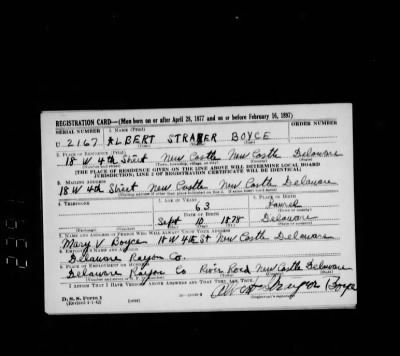 REGISTRATION CARD—(Men born on or after April 28, 1877 and on or before February 16, 1897)
SERIAL NUMBER 1. NAME (Print) ORDER NUMBER
U 2167 ALBERT STRAYER BOYCE
2. PLACE OF RESIDENCE (Print)
18 W 4th Street New Castle New Castle Delaware
[THE PLACE OF RESIDENCE GIVEN ON THE LINE ABOVE WILL DETERMINE LOCAL BOARD
JURISDICTION; LINE 2 OF REGISTRATION CERTIFICATE WILL BE IDENTICAL]
3. MAILING ADDRESS
18 W 4th Street New Castle New Castle Delaware
4. TELEPHONE 5. AGE IN YEARS 6. PLACE OF BIRTH
63 Laurel
DATE OF BIRTH
Sept 10 1878 Delaware
7. NAME AND ADDRESS OF PERSON WHO WILL ALWAYS KNOW YOUR ADDRESS
Mary V Boyce 18 W 4th St New Castle Delaware
8. EMPLOYER'S NAME AND ADDRESS
Delaware Rayon Co.
9. PLACE OF EMPLOYMENT OR BUSINESS
Delaware Rayon Co River Road New Castle Delaware
I AFFIRM THAT I HAVE VERIFIED ABOVE ANSWERS AND THAT THEY ARE TRUE.
Boyce
D. S. S. Form 1
(Revised 4-1-42)
239